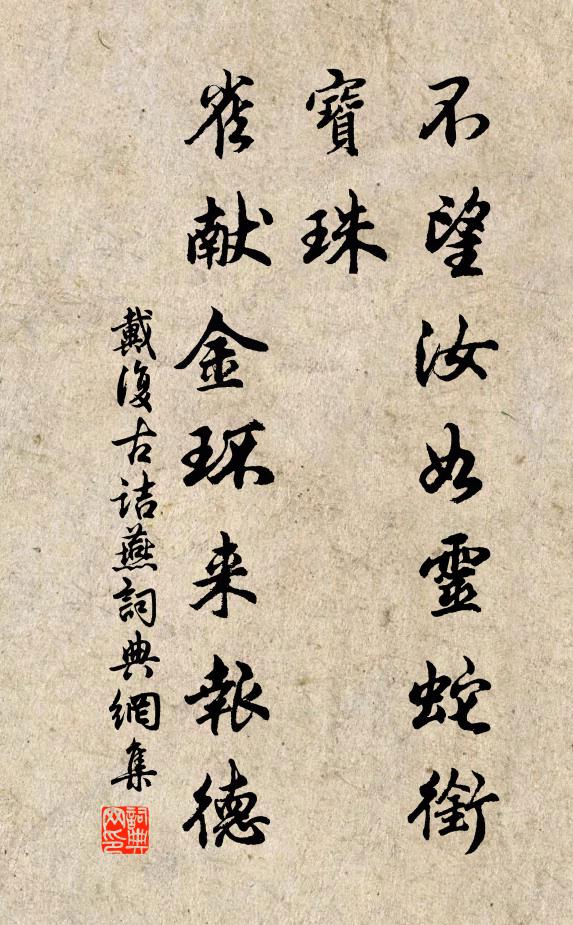 不望汝如靈蛇銜
寶珠
雀献金环来報德
戴復古詰燕詞典網集
詞典网印